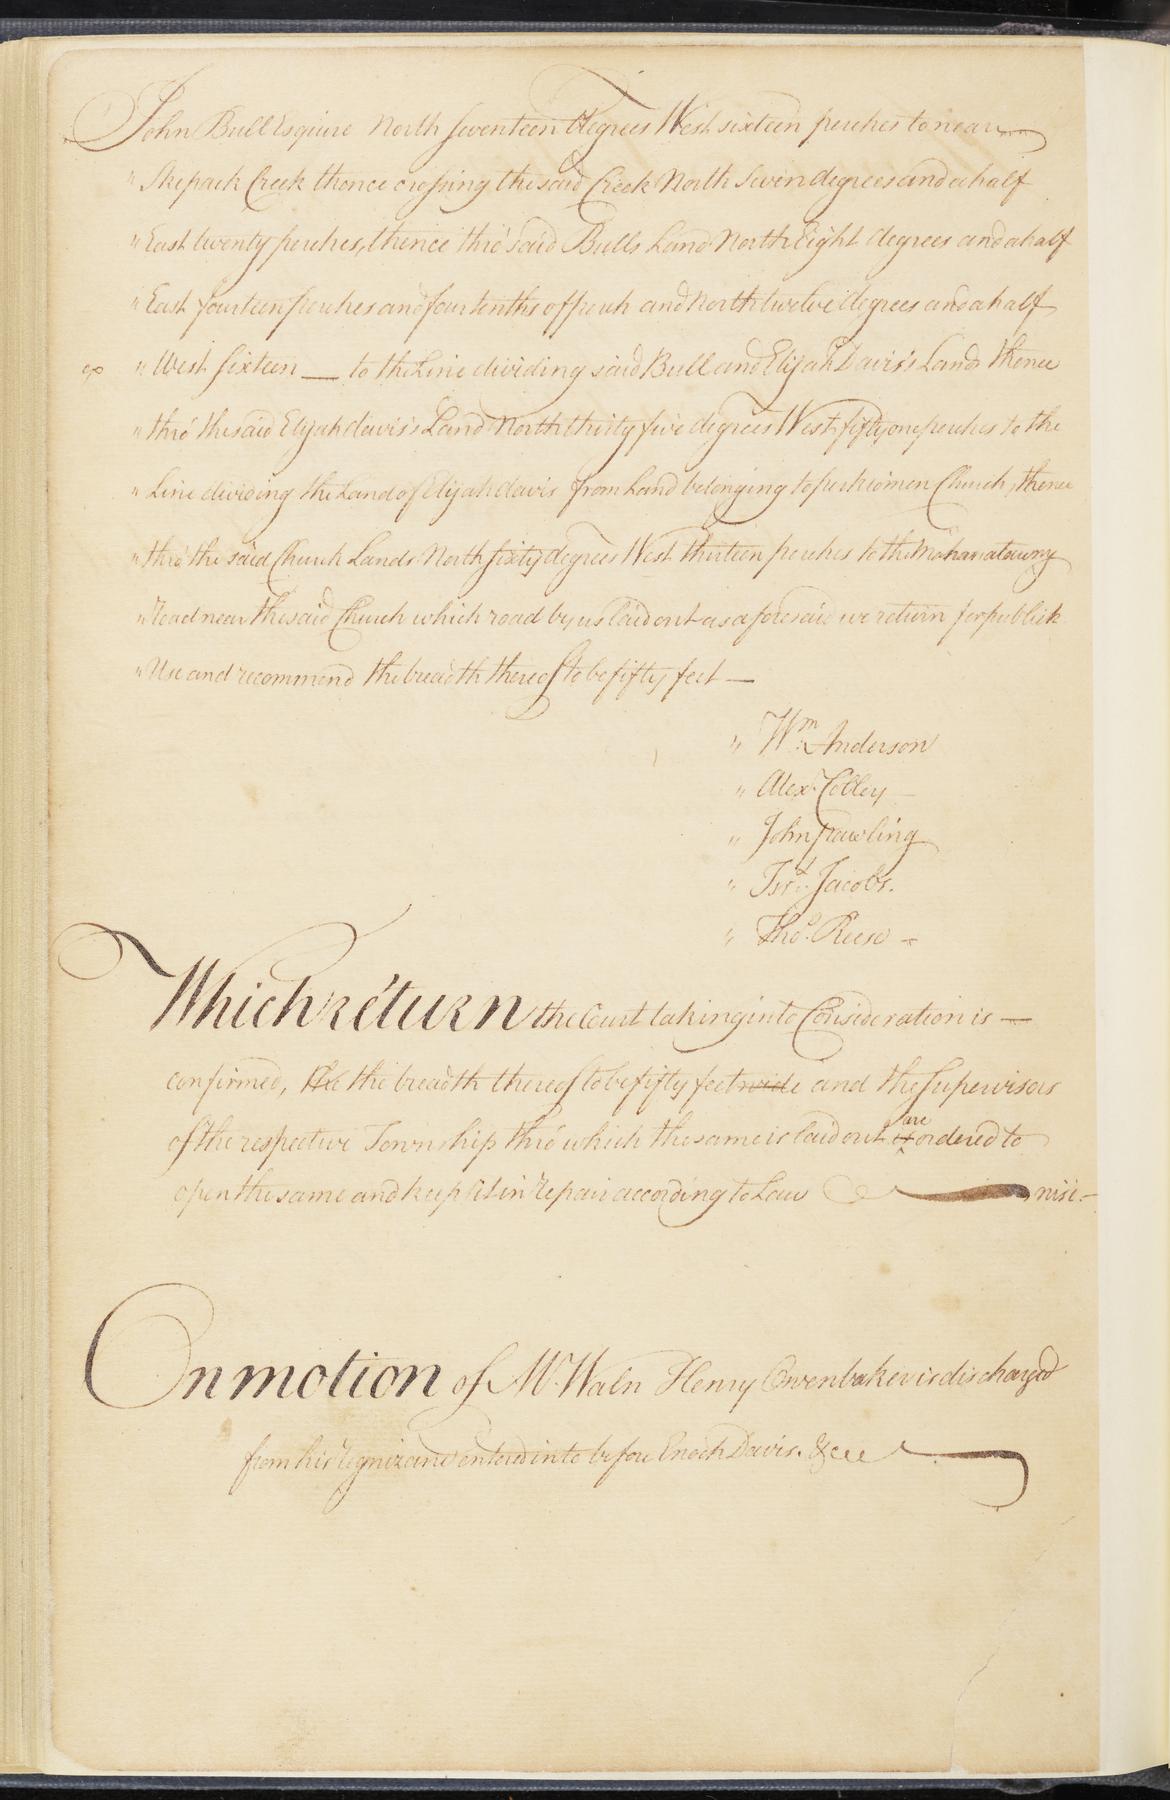 John Bull Esquire North Seventeen Degrees West sixteen perches to near
" Skepack Creek thence crossing the said Creek North Seven degrees and a half
" East twenty perches, thence thro' said Bulls Land North Eight degrees and a half
" East fourteen perches and four tenths of perch and North twelve degrees and a half
" West Sixteen — to the Line dividing said Bull and Elijah Davis's Lands thence
" thro' the said Elijah davis's Land North thirty five degrees West fifty one perches to the
" Line dividing the Land of Elijah davis from Land belonging to perkiomen Church, thence
" thro' the said Church Lands North sixty degrees West thirteen perches to the Mahanatawny
" Road near the said Church which road by us laid out as aforesaid we return for publick
" Use and recommend the breadth thereof to be fifty feet —
" Wm. Anderson
" Alexr. Colley —
" John
" Isrl. Jacobs.
" Thos. Reese
Which return the Court taking into Consideration is —
confirmed, the breadth thereof to be fifty feet wide and the Supervisors
of the respective Township thro' which the same is laid out are ordered to
open the same and keep it in repair according to Law nisi.—
On motion of Mr. Waln Henry Cowenbaker is discharged
from his recognizance entered into before Enoch Davis. &c